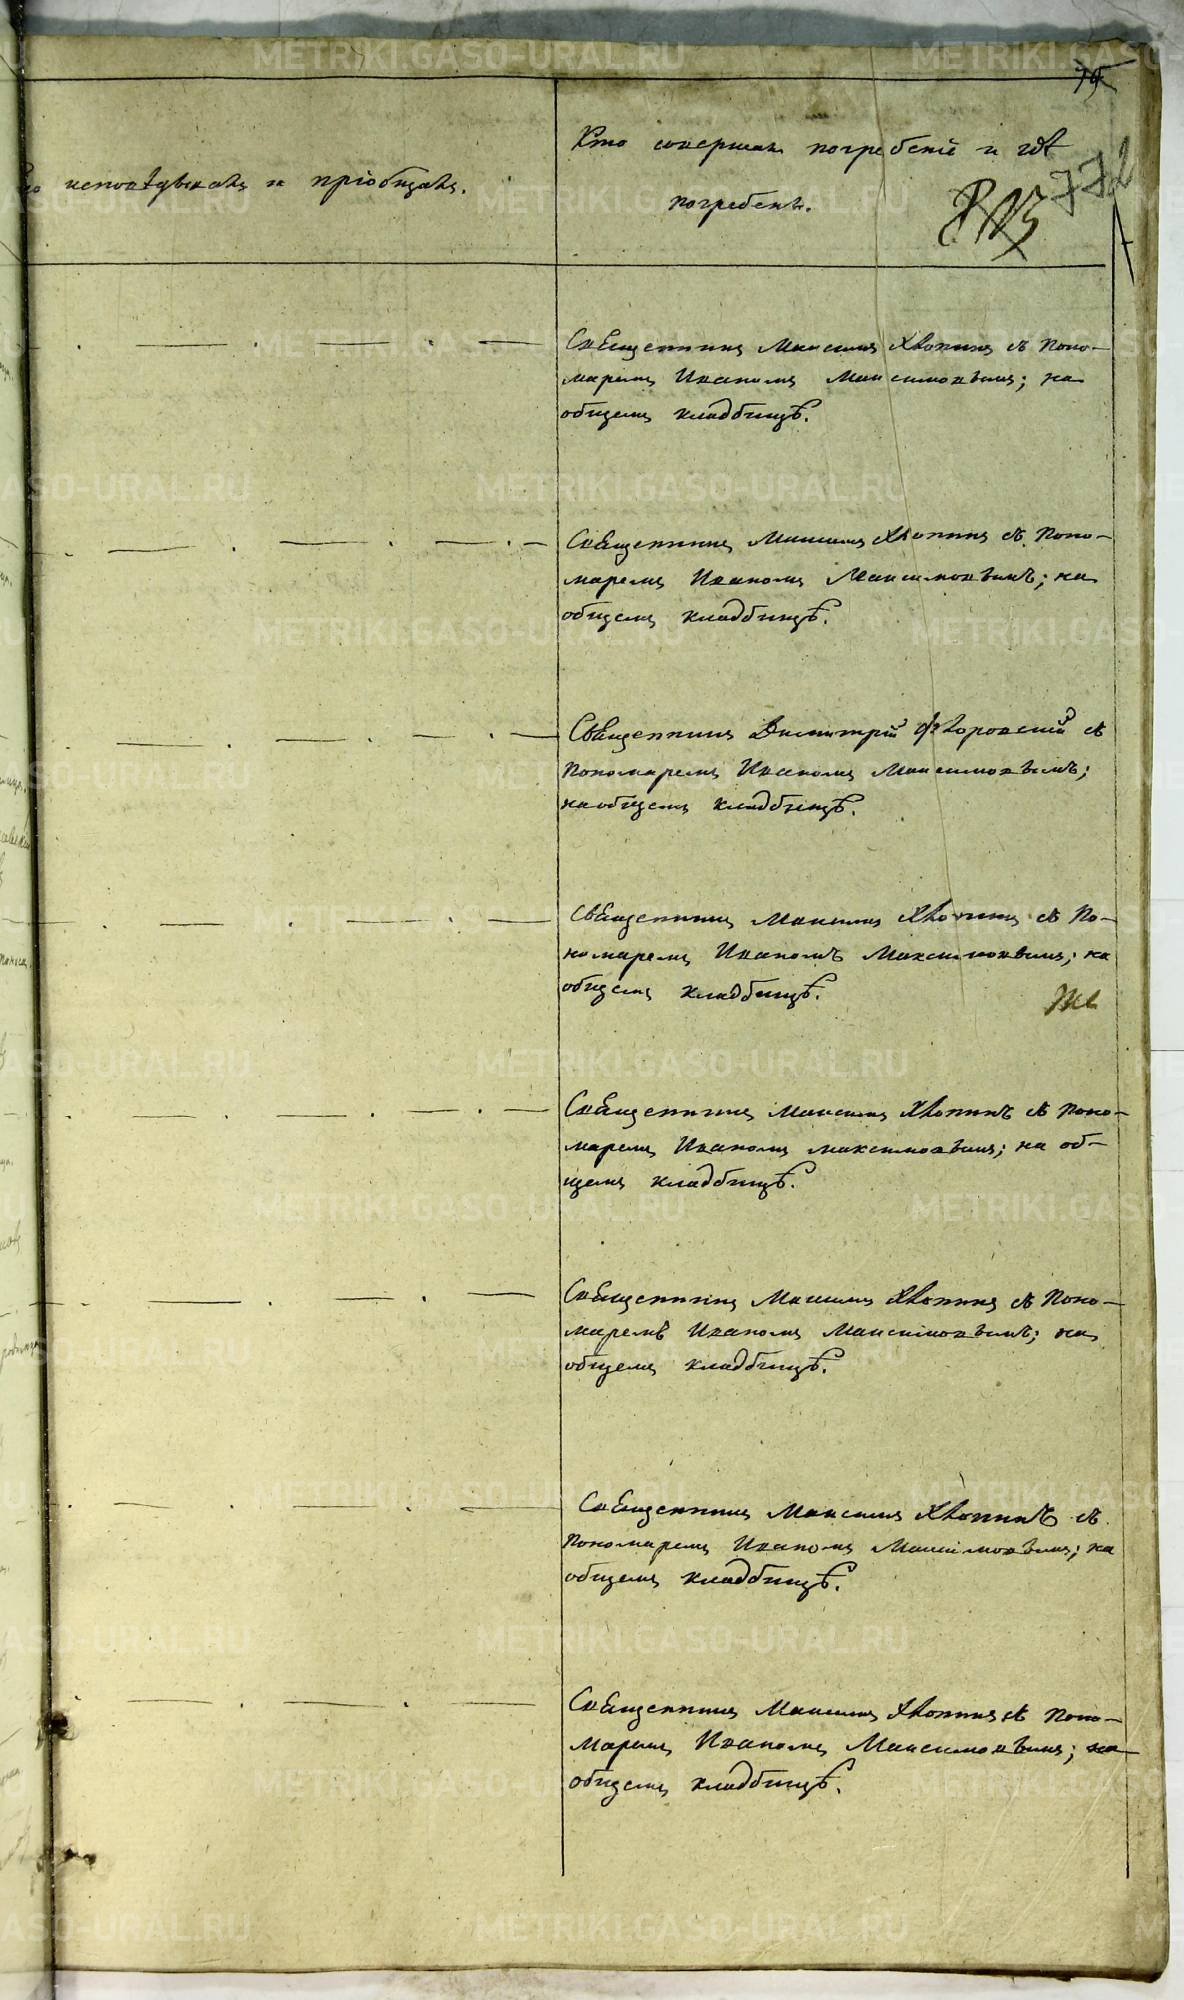 79
772
исповѣдывалъ и пріобщалъ.
Кто совершалъ погребеніе и гдѣ
погребенъ.
Священникъ Максимъ Хлопинъ съ Поно-
маремъ Иваномъ Максимовымъ; на
общемъ кладбищѣ.
Священникъ Максимъ Хлопинъ съ Поно-
маремъ Иваномъ Максимовымъ; на
общемъ кладбищѣ.
Священникъ Димитрій Флоровскій съ
Пономаремъ Иваномъ Максимовымъ;
на общемъ кладбищѣ.
Священникъ Максимъ Хлопинъ съ По-
номаремъ Иваномъ Максимовымъ; на
общемъ кладбищѣ.
Священникъ Максимъ Хлопинъ съ Поно-
маремъ Иваномъ Максимовымъ; на об-
щемъ кладбищѣ.
Священникъ Максимъ Хлопинъ съ Поно-
маремъ Иваномъ Максимовымъ; на
общемъ кладбищѣ.
Священникъ Максимъ Хлопинъ съ
Пономаремъ Иваномъ Максимовымъ; на
общемъ кладбищѣ.
Священникъ Максимъ Хлопинъ съ Поно-
маремъ Иваномъ Максимовымъ; на
общемъ кладбищѣ.
METRIKI.GASO-URAL.RU